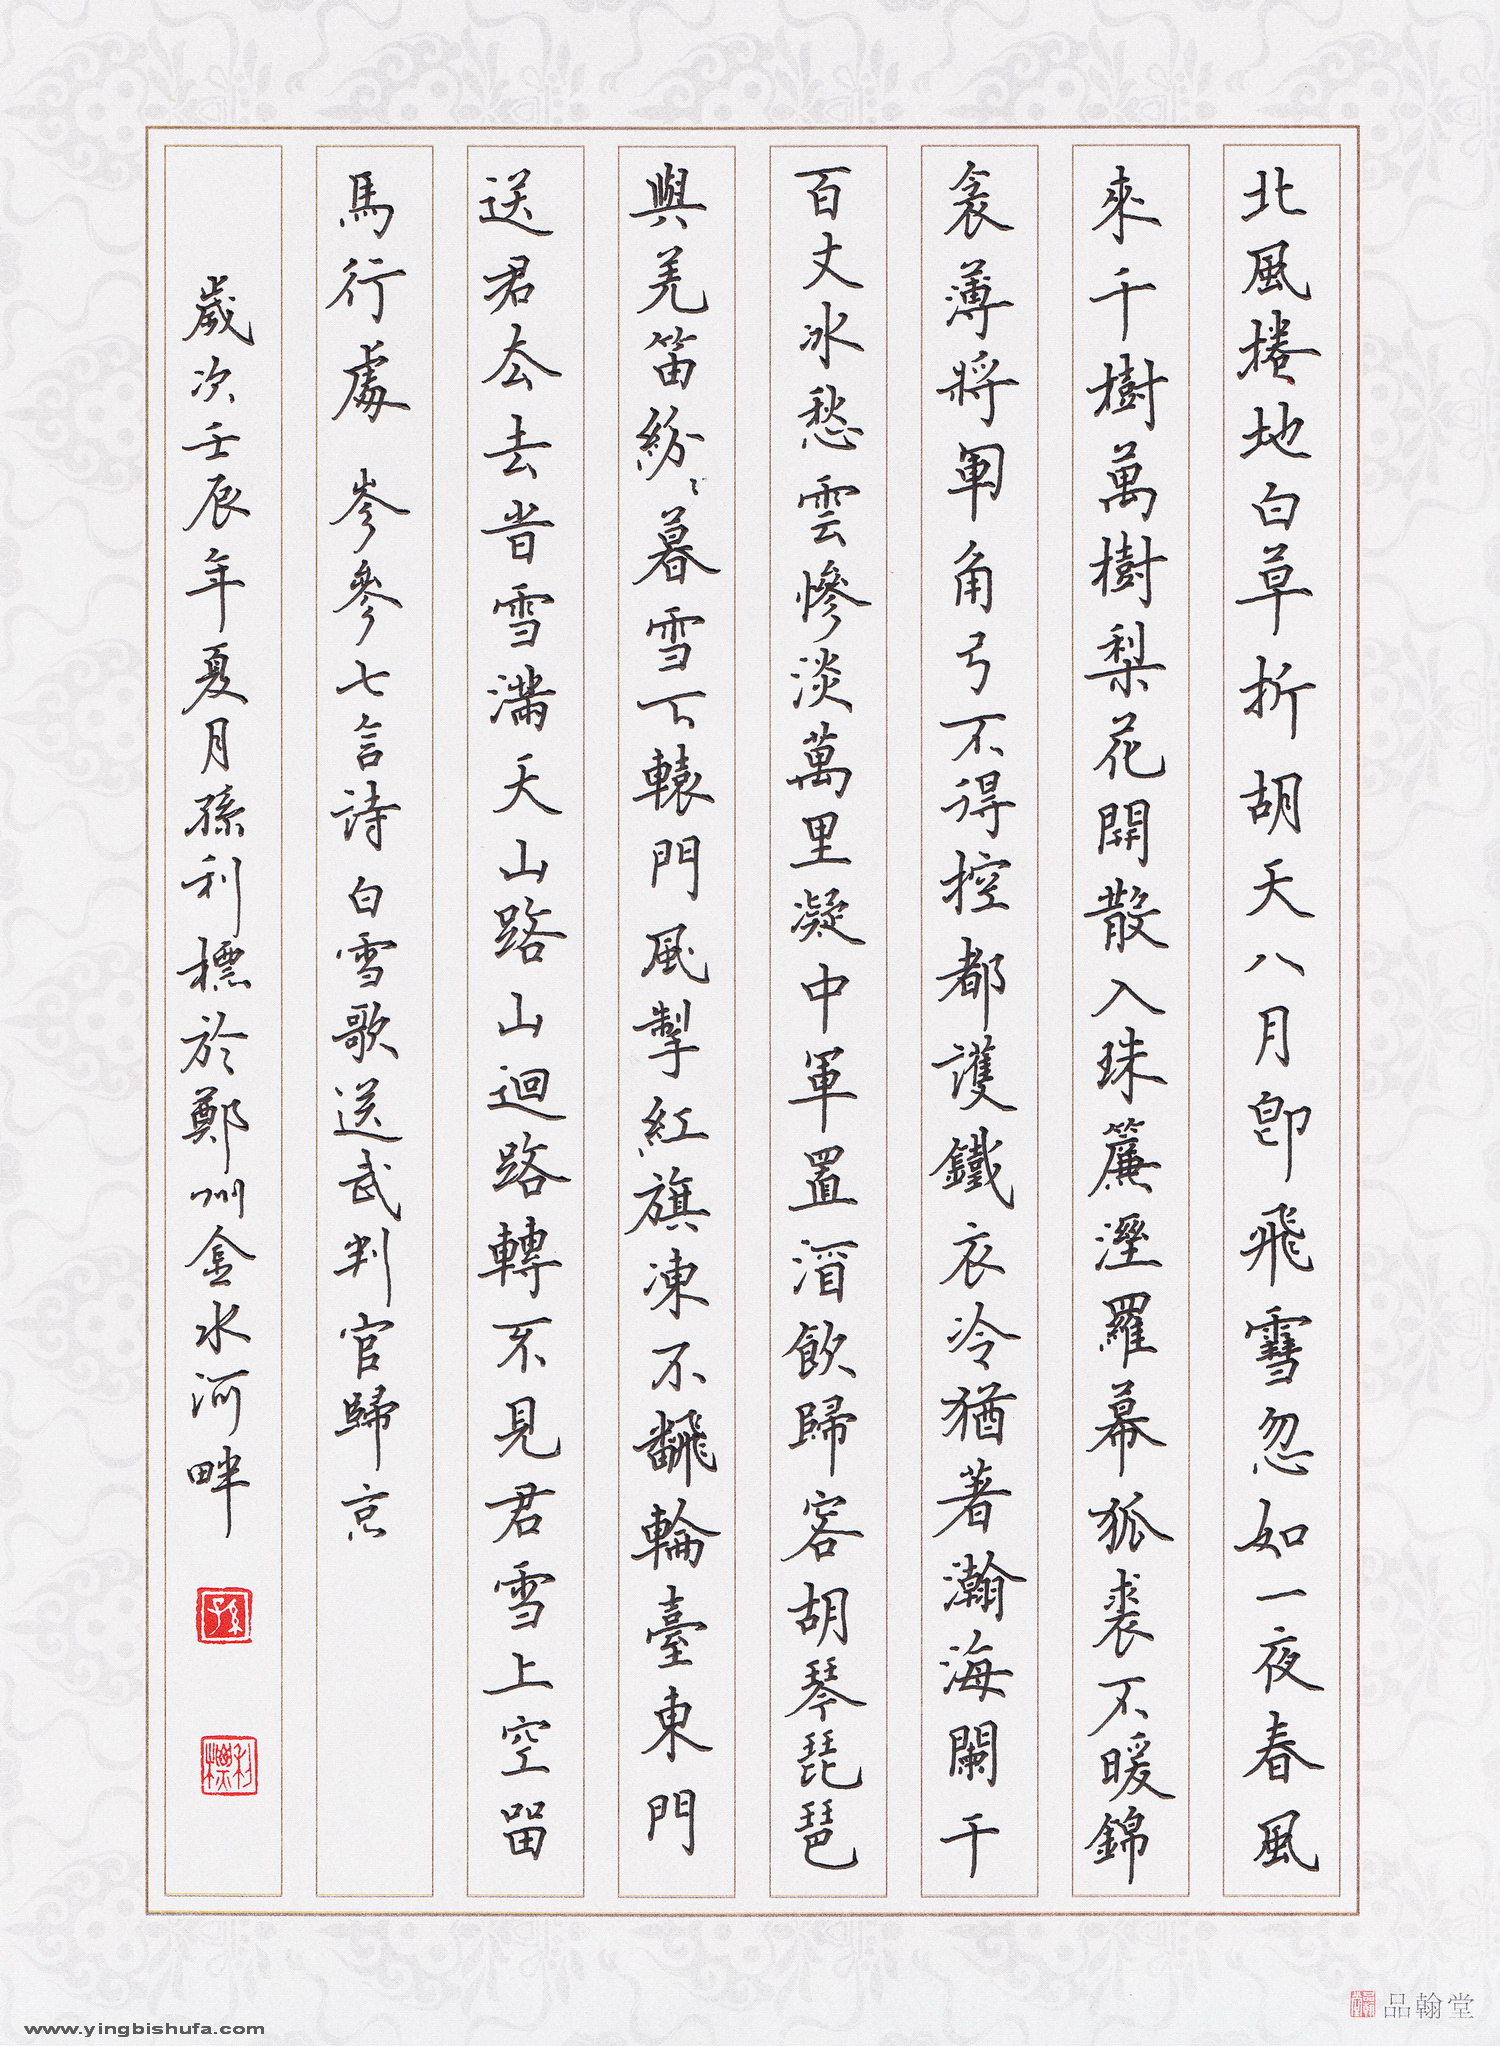 北風捲地白草折胡天八月卽飛雪忽如一夜春風
來千樹萬樹梨花開散入珠簾溼羅幕狐裘不暖錦
衾薄將軍角弓不得控都護鐵衣冷猶著瀚海闌干
百丈冰愁雲慘淡萬里凝中軍置酒飲歸客胡琴琵琶
與羌笛紛〻暮雪下轅門風掣紅旗凍不飜輪臺東門
送君去去旹雪滿天山路山迴路轉不見君雪上空留
馬行處 岑參七言詩 白雪歌送武判官歸京
歲次壬辰年夏月孫利標於鄭州金水河畔
孫
利標
品翰堂
www.yingbishufa.com